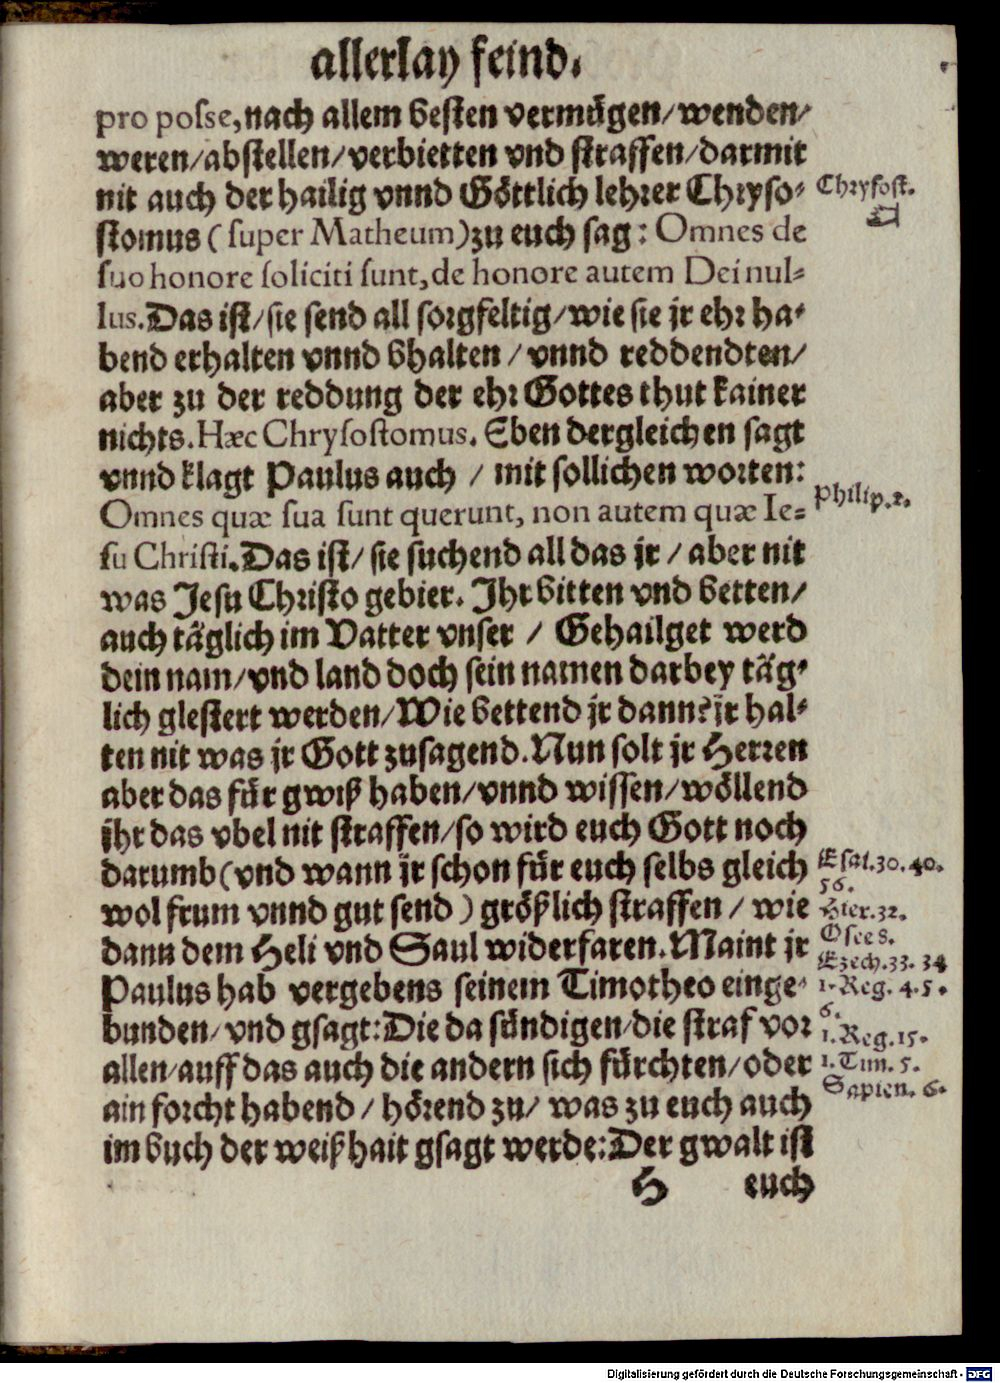 allerlay feind.
pro posse, nach allem besten vermügen/ wenden/
weren/ abstellen/ verbietten vnd straffen/ darmit
nit auch der hailig vnnd Göttlich lehrer Chryso-
stomus ( super Matheum) zu euch sag: Omnes de
suo honore soliciti sunt, de honore autem Dei nul-
lus. Das ist/ sie send all sorgfeltig/ wie sie jr ehr ha-
bend erhalten vnnd bhalten / vnnd reddendten/
aber zu der reddung der ehr Gottes thut kainer
nichts. Hæc Chrysostomus. Eben dergleichen sagt
vnnd klagt Paulus auch / mit sollichen worten:
Omnes quæ sua sunt querunt, non autem quæ Ie-
su Christi. Das ist/ sie suchend all das jr / aber nit
was Jesu Christo gebier. Ihr bitten vnd betten/
auch täglich im Vatter vnser / Gehailget werd
dein nam/ vnd land doch sein namen darbey täg-
lich glestert werden/ Wie bettend jr dann? jr hal-
ten nit was jr Gott zusagend. Nun solt jr Herren
aber das für gwiß haben/ vnnd wissen/ wöllend
jhr das vbel nit straffen/ so wird euch Gott noch
darumb (vnd wann jr schon für euch selbs gleich
wol frum vnnd gut send ) größlich straffen / wie
dann dem Heli vnd Saul widerfaren. Maint jr
Paulus hab vergebens seinem Timotheo einge-
bunden/ vnd gsagt: Die da sündigen/ die straf vor
allen/ auff das auch die andern sich fürchten/ oder
ain forcht habend / hörend zu/ was zu euch auch
im buch der weißhait gsagt werde: Der gwalt ist
H euch
Chrysost.
Philip. 2.
Esai. 30. 40.
56.
Hier. 32.
Osee 8.
Ezech. 33. 34
1. Reg. 4. 5.
6.
1. Reg. 15.
1. Tim. 5.
Sapien. 6.
Digitalisierung gefördert durch die Deutsche Forschungsgemeinschaft - DFG